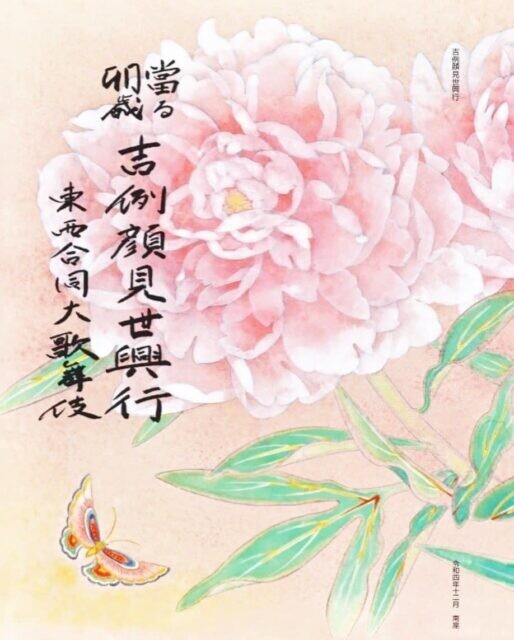 吉例顔見世興行
當る
卯歳
吉例顔見世興行
東西合同大歌舞伎
令和四年十二月 南座